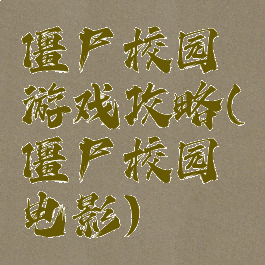 僵尸校园
游戏攻略(
僵尸校园
电影)